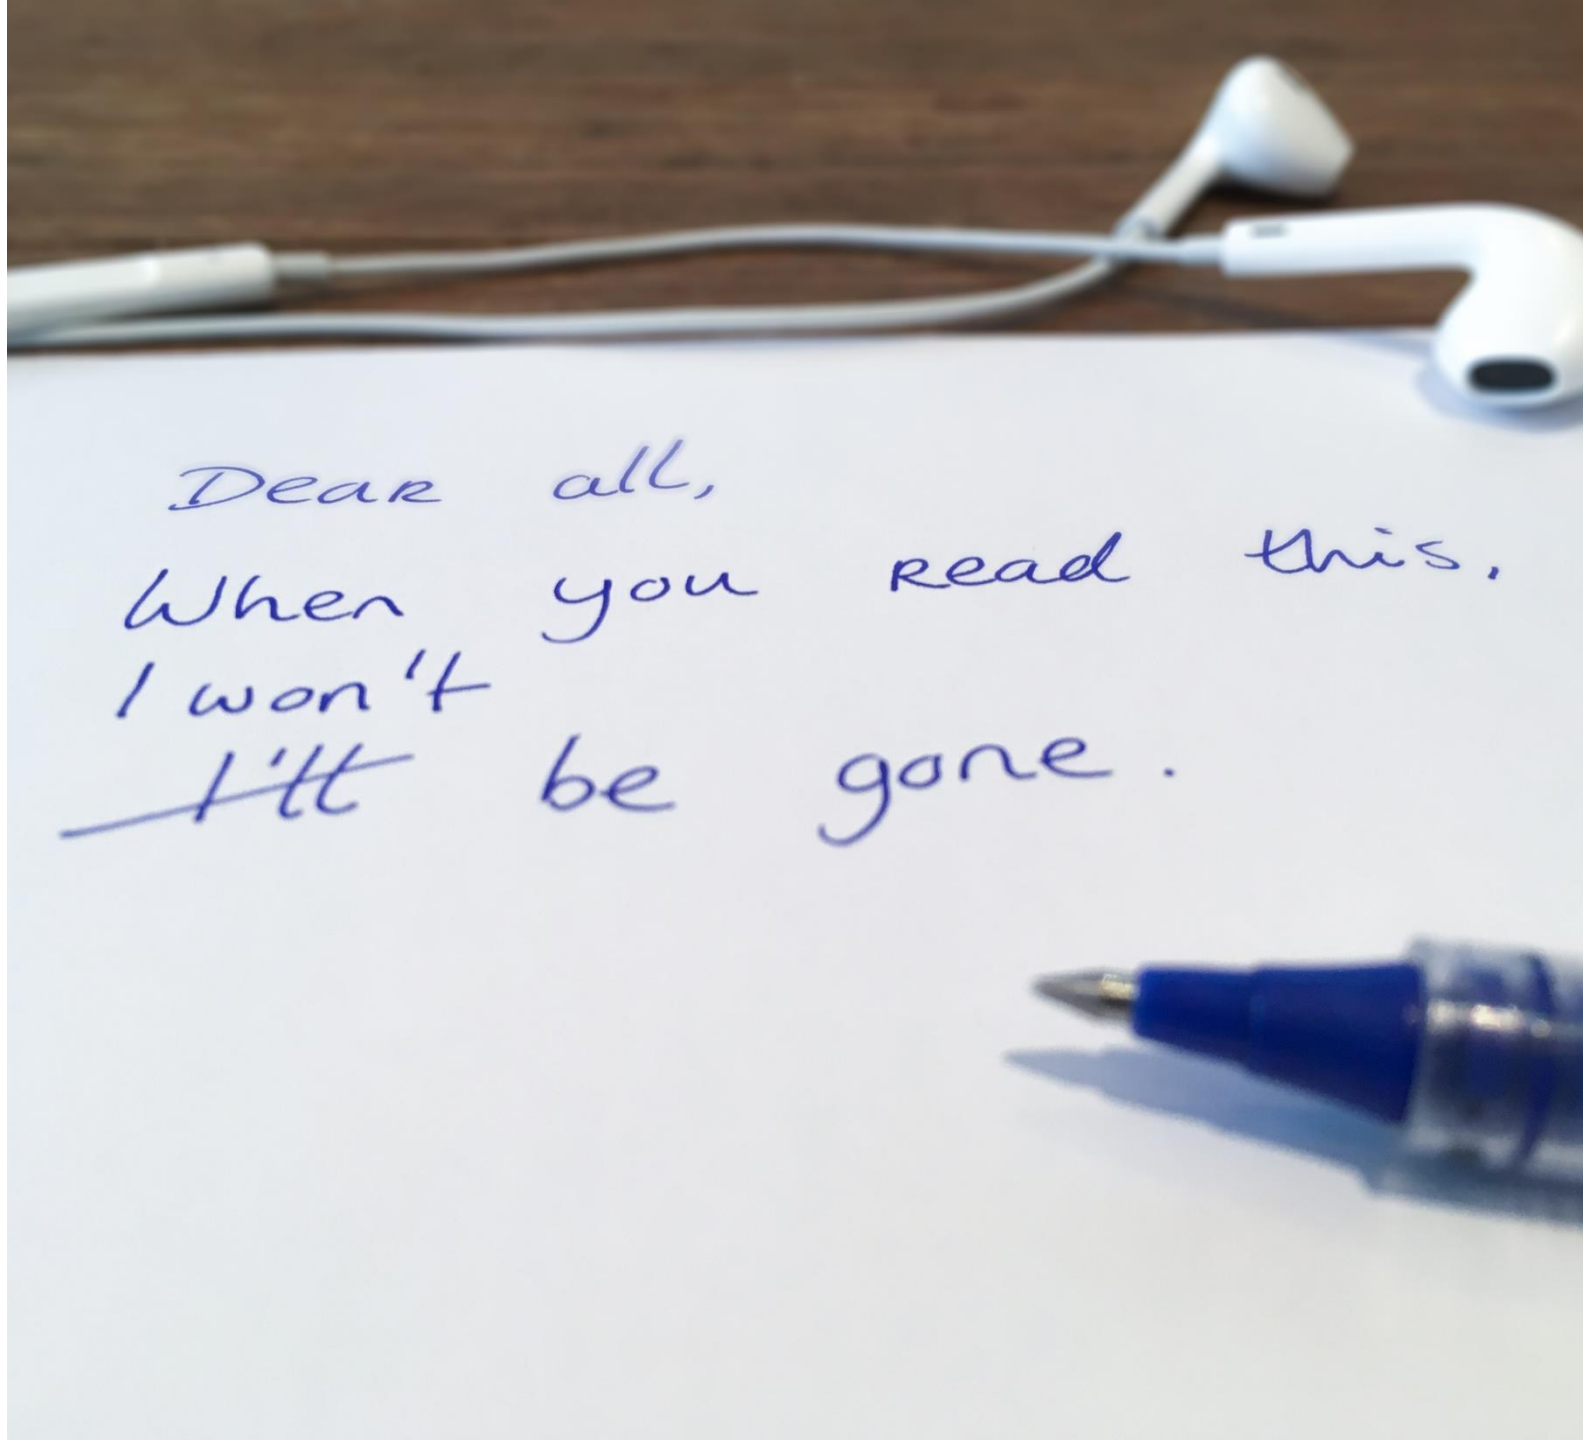 Dear all,
When you read this,
I won't
I'll be gone.